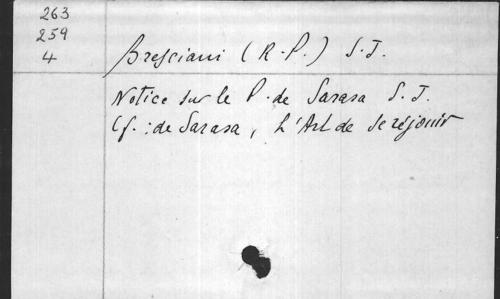 263
259
4
Bresciani (R.P.) S.J.
Notice sur le P. de Sarasa S.J.
Cf. : de Sarasa, L'Art de se réjouir